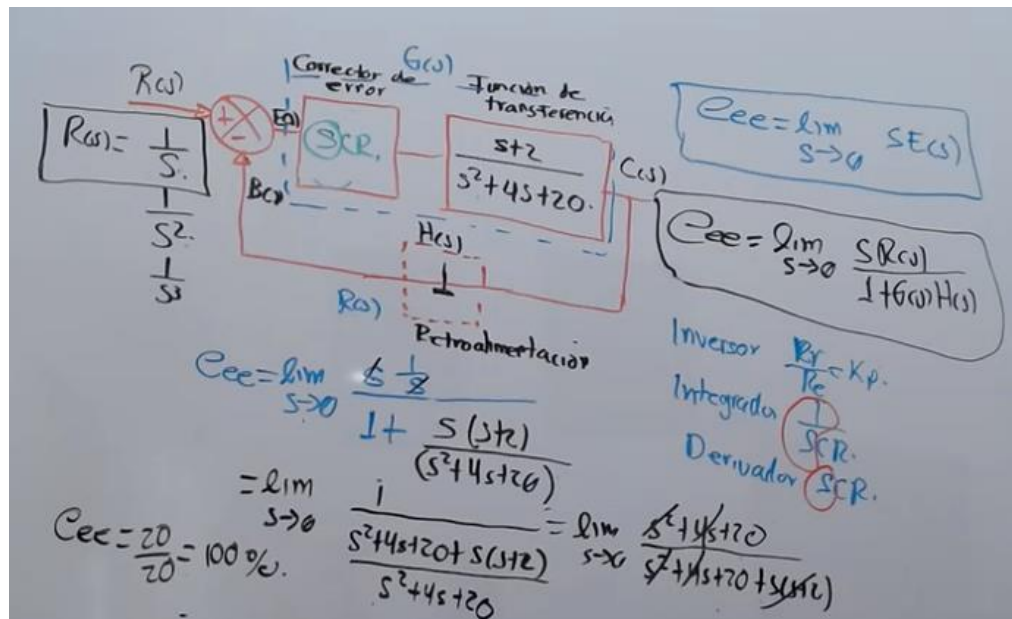 Corrector de error
G(s)
Función de transferencia
R(s)
+
-
E(s)
SCR.
s+2 / s²+4s+20.
C(s)
R(s) = 1/S.
1/S².
1/S³
B(s)
H(s)
1
R(s)
Retroalimentación
eee = lim s→0 SE(s)
eee = lim s→0 SR(s) / 1+G(s)H(s)
Inversor Rf/Re = Kp.
Integrador 1/SCR.
Derivador SCR.
eee = lim s→0 s 1/s / 1 + s(s+2)/(s²+4s+20)
= lim s→0 1 / s²+4s+20+s(s+2) / s²+4s+20 = lim s→0 s²+4s+20 / s²+4s+20+s(s+2)
eee = 20/20 = 100%.